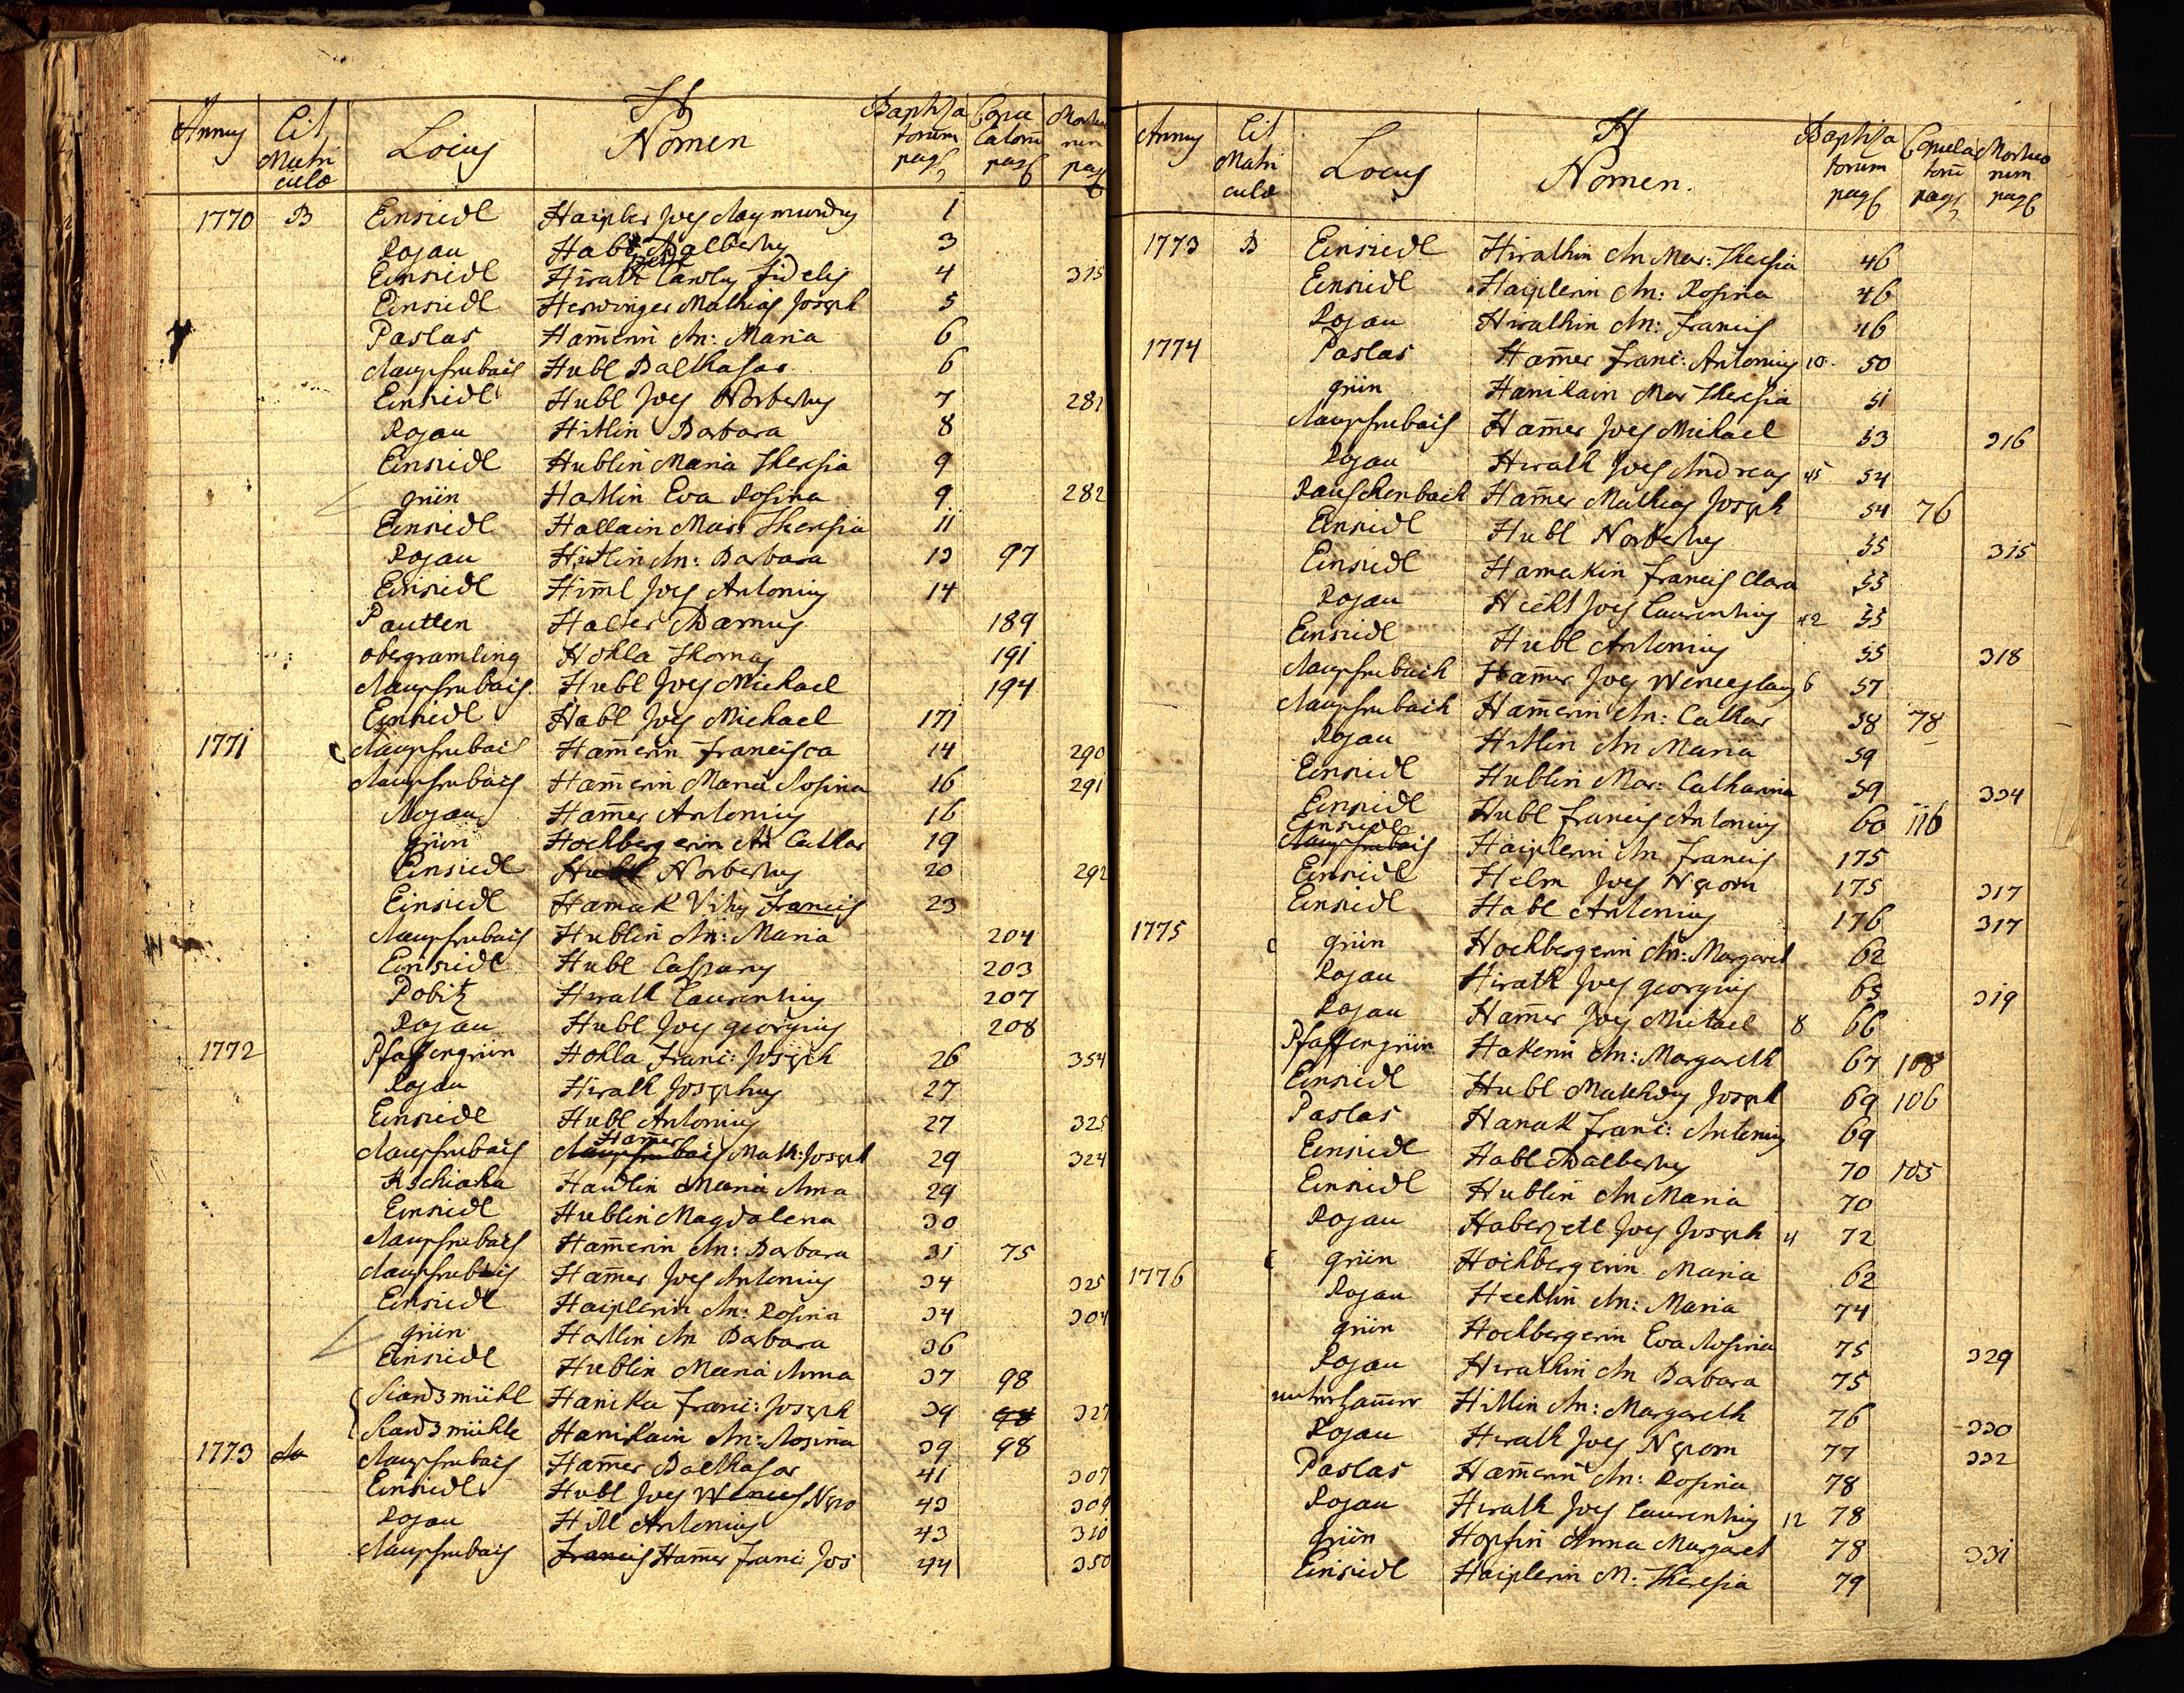 H
Annus Lit Matriculæ Locus Nomen Baptisatorum pag Copulatorū pag Mortuorum pag
1770 B Einsiedl Haipler Joes Raymundus 1
Rojau Habl Adalbertus 3
Einsiedl Hirath Carolus Fidelis 4 315
Einsiedl Herwinger Mathias Joseph 5
Paslas Ham̄erin An: Maria 6
Rauschenbach Hubl Balthasar 6
Einsiedl Hubl Joes Norbertus 7 281
Rojau Hitlin Barbara 8
Einsiedl Hublin Maria Theresia 9
grün Hartlin Eva Rosina 9 282
Einsiedl Hallain Mar: Theresia 11
Rojau Hitlin An: Barbara 13 97
Einsiedl Him̄l Joes Antonius 14
Pautten Haler Adamus 189
obergramling Hohla Thomas 191
Rauschenbach Hubl Joes Michael 194
Einsiedl Habl Joes Michael 171
1771 C Rauschenbach Ham̄erin Francisca 14 290
Rauschenbach Ham̄erin Maria Rosina 16 291
Rojau Ham̄er Antonius 16
grün Hochbergerin An Cathar 19
Einsiedl Hubl Norbertus 20 292
Einsiedl Hamak Vitus Francis 23
Rauschenbach Hublin An: Maria 204
Einsiedl Hubl Casparus 203
Pobitz Hirath Laurentius 207
Rojau Hubl Joes georgius 208
1772 Pfaffengrün Hohla Franc: Joseph 26 354
Rojau Hirath Josephus 27
Einsiedl Hubl Antonius 27 325
Rauschenbach Ham̄er Math: Joseph 29 324
Rschiaha Haudlin Maria Anna 29
Einsiedl Hublin Magdalena 30
Rauschenbach Ham̄erin An: Barbara 31 75
Rauschenbach Ham̄er Joes Antonius 34 325
Einsiedl Haiplerin An: Rosina 34 304
grün Hartlin An Barbara 36
Einsiedl Hublin Maria Anna 37 98
Siardsmühl Hanika Franc: Joseph 39 98 327
Siardsmühle Hanikain An: Rosina 39 98
1773 Rauschenbach Ham̄er Balthasar 41 307
Einsiedl Hubl Joes Wences Nepo 43 309
Rojau Hitl Antonius 43 310
Rauschenbach Francis Ham̄er Franc: Jos 44 350
H
Annus Lit Matriculæ Locus Nomen. Baptisatorum pag Copulatorū pag Mortuorum pag
1773 B Einsiedl Hirathin An Mar: Theresia 46
Einsiedl Haiplerin An: Rosina 46
Rojau Hirathin An: Francis 46
1774 Paslas Ham̄er Franc: Antonius 10 50
grün Hanikain Mar Theresia 51
Rauschenbach Ham̄er Joes Michael 53 316
Rojau Hirath Joes Andreas 45 54
Rauschenbach Ham̄er Mathias Joseph 54 76
Einsiedl Hubl Norbertus 55 315
Einsiedl Hamakin Francis Clara 55
Rojau Hickl Joes Laurentius 42 55
Einsiedl Hubl Antonius 55 318
Rauschenbach Ham̄er Joes Wenceslaus 6 57
Rauschenbach Ham̄erin An: Cathar 58 78
Rojau Hitlin An Maria 59
Einsiedl Hublin Mar: Catharina 59 334
Einsiedl Hubl Francis Antonius 60 116
Einsiedl Rauschenbach Haiplerin An Francis 175
Einsiedl Helm Joes Nepom 175 317
Einsiedl Habl Antonius 176 317
1775 C grün Hochbergerin An: Margaret 62
Rojau Hirath Joes georgius 65 319
Rojau Ham̄er Joes Michael 8 66
Pfaffengrün Hakerin An: Margareth 67 108
Einsiedl Hubl Mathæus Joseph 69 106
Paslas Hanak Franc: Antonius 69
Einsiedl Habl Adalbertus 70 105
Einsiedl Hublin An Maria 70
Rojau Haberzetl Joes Joseph 4 72
1776 C grün Hochbergerin Maria 62
Rojau Hecklin An: Maria 74
grün Hochbergerin Eva Rosina 75 329
Rojau Hirathin An Barbara 75
unterham̄er Hitlin An: Margareth 76 330
Rojau Hirath Joes Nepom 77 332
Paslas Ham̄erin An: Rosina 78
Rojau Hirath Joes Laurentius 12 78
grün Hopfin Anna Margaret 78 331
Einsiedl Haiplerin M: Theresia 79